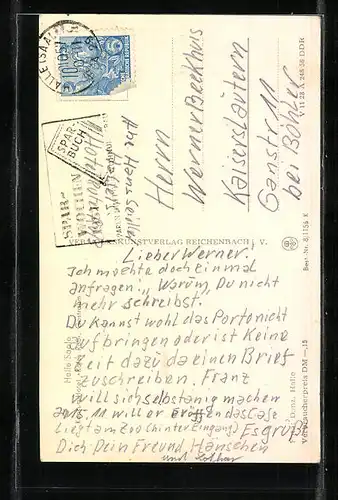 HALLE (SAALE)
SPAR-
BUCH
SPAR-
WOCHEN
Herrn
Werner Beekhuis
Kaiserslautern
Ganstr 11
bei Böhler
11 28 A 246 56 DDR
VERLAG KUNSTVERLAG REICHENBACH I. V.
Best.-Nr. 8/1156 K
Verbraucherpreis DM —,15
Halle Saale
Lieber Werner.
Ich moehte doch einmal
anfragen„ Warum, Du nicht
mehr schreibst.
Du Kannst wohl das Porto nicht
aufbringen oder ist Keine
Zeit dazu da einen Brief
zuschreiben. Franz
will sich selbstänig machen
am 5. 11 will er eröffen das Case
liegt am Zoo (hinter Eingang) Es grüßt
Dich Dein Freund Hänschen
und Lothar